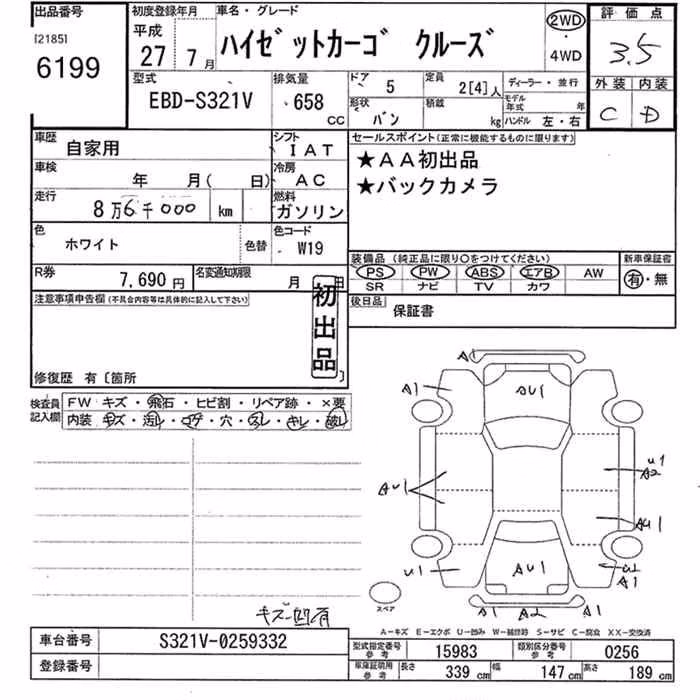 出品番号 初度登録年月 車名・グレード 評価点
[2185] 平成 2WD
6199 27年 7月 ハイゼットカーゴ クルーズ ・ 3.5
4WD
型式 排気量 ドア 5 定員 2[4]人 ディーラー・並行 外装 内装
EBD-S321V 658 CC 形状 バン 積載 kg モデル年式 年 C D
ハンドル 左・右
車歴 自家用 シフト IAT セールスポイント(正常に機能するものに限ります)
車検 年 月( 日) 冷房 AC ★AA初出品
走行 8万6千000 km 燃料 ガソリン ★バックカメラ
色 ホワイト 色替 色コード W19
装備品(純正品に限り○をつけてください) 新車保証書
R券 7,690円 名変通知期限 月 日 PS PW ABS エアB AW 有・無
SR ナビ TV カワ
注意事項申告欄(不具合内容等は具体的に記入して下さい) 初出品 後日品 保証書
修復歴 有[箇所 ]
検査員記入欄 FW キズ・飛石・ヒビ割・リペア跡・×要
内装・キズ・汚レ・コゲ・穴・スレ・キレ・破レ
A1
A1 AU1
U1
A2
AU1 AU1
U1 AU1 U2
A1
スペア A1 A2 A1
キズ凹有
A-キズ E-エクボ U-凹み W-補修跡 S-サビ C-腐食 XX-交換済
車台番号 S321V-0259332 型式指定番号参考 15983 類別区分番号参考 0256
登録番号 車庫証明用参考 長さ 339 cm 幅 147 cm 高さ 189 cm